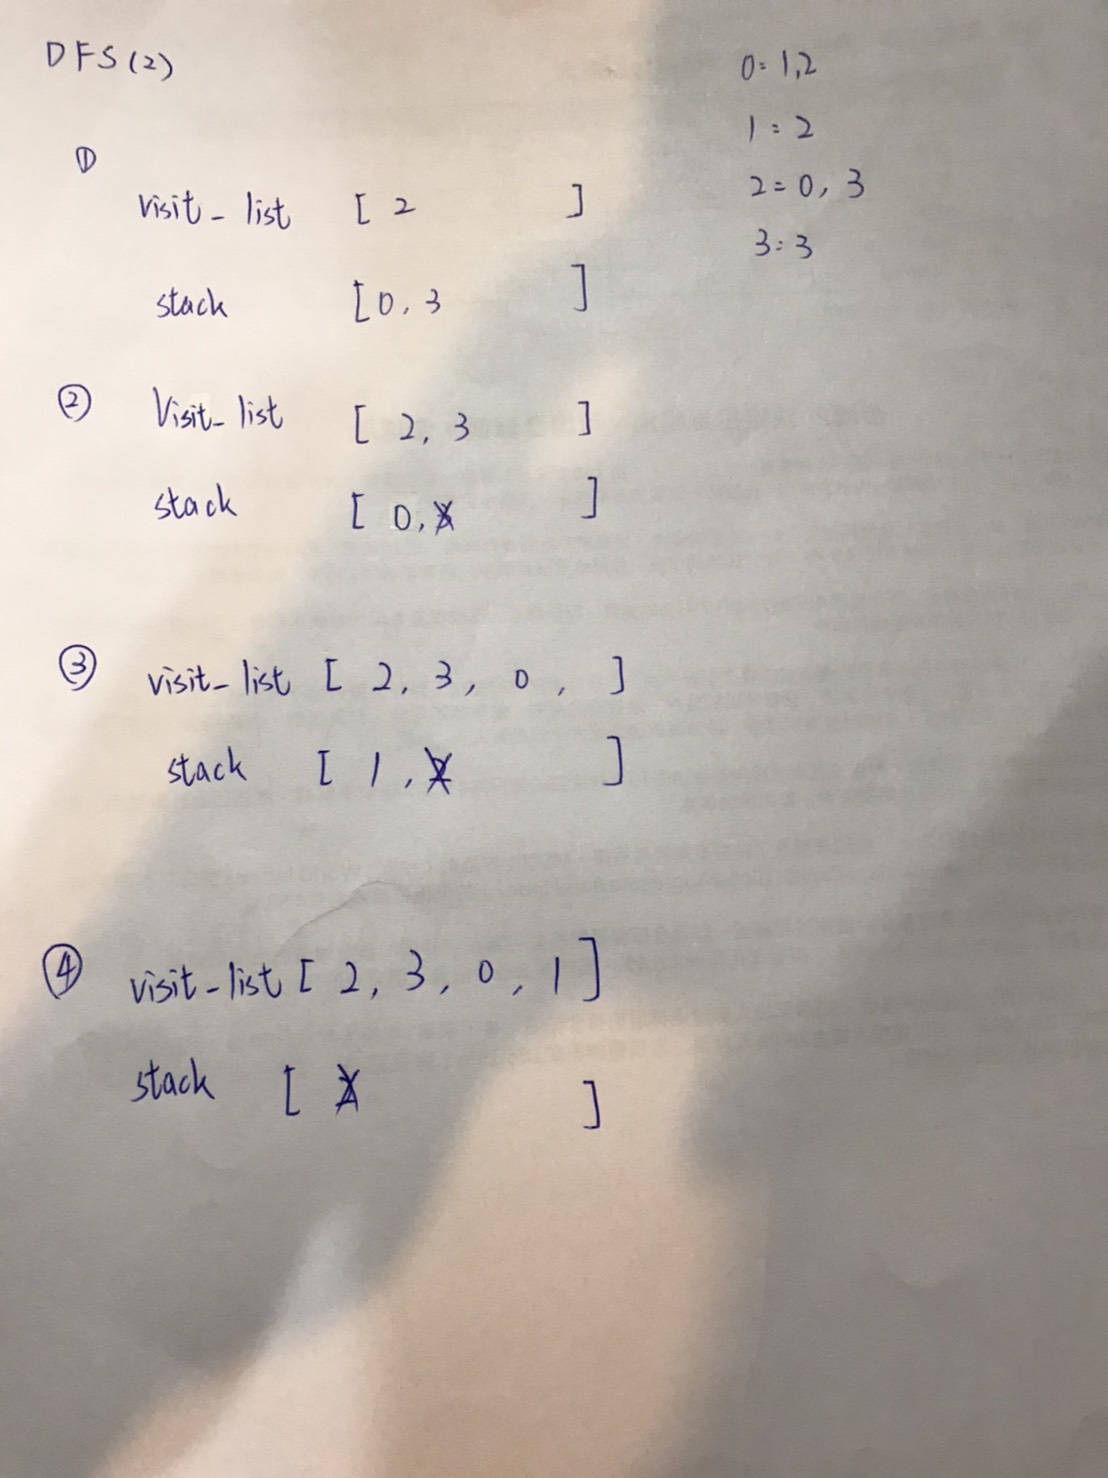 DFS(2)
0: 1,2
1: 2
2=0, 3
3: 3
①
visit_list [ 2 ]
stack [0, 3 ]
②
Visit_list [ 2, 3 ]
stack [ 0, ]
③
visit_list [ 2, 3, 0, ]
stack [ 1, ]
④
visit_list [ 2, 3, 0, 1 ]
stack [ ]